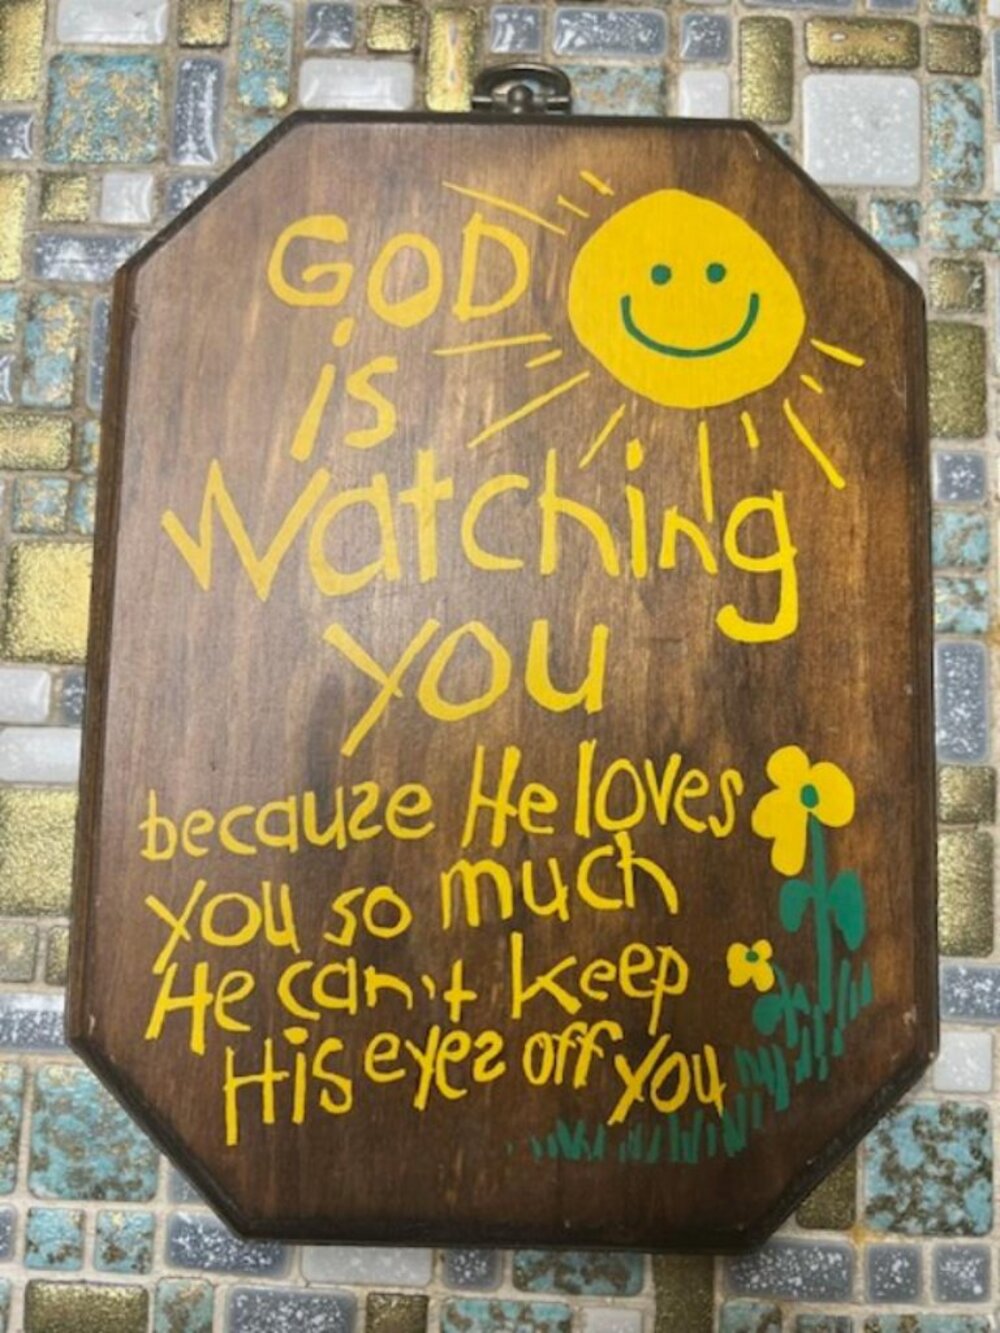 GOD
is
Watching
you
because He loves
you so much
He can't keep
His eyes off you